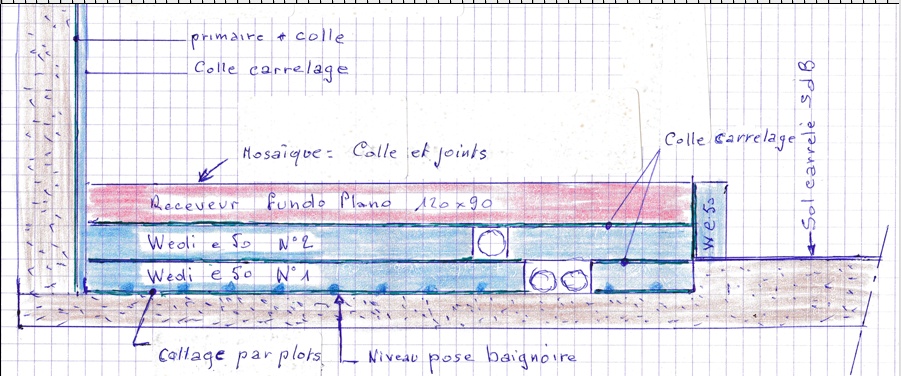 primaire + colle
Colle carrelage
Mosaïque = Colle et joints
Colle carrelage
Sol carrelé SdB
Receveur Fundo Plano 120 x 90
We 50
Wedi e 50 N°2
Wedi e 50 N°1
Collage par plots
Niveau pose baignoire